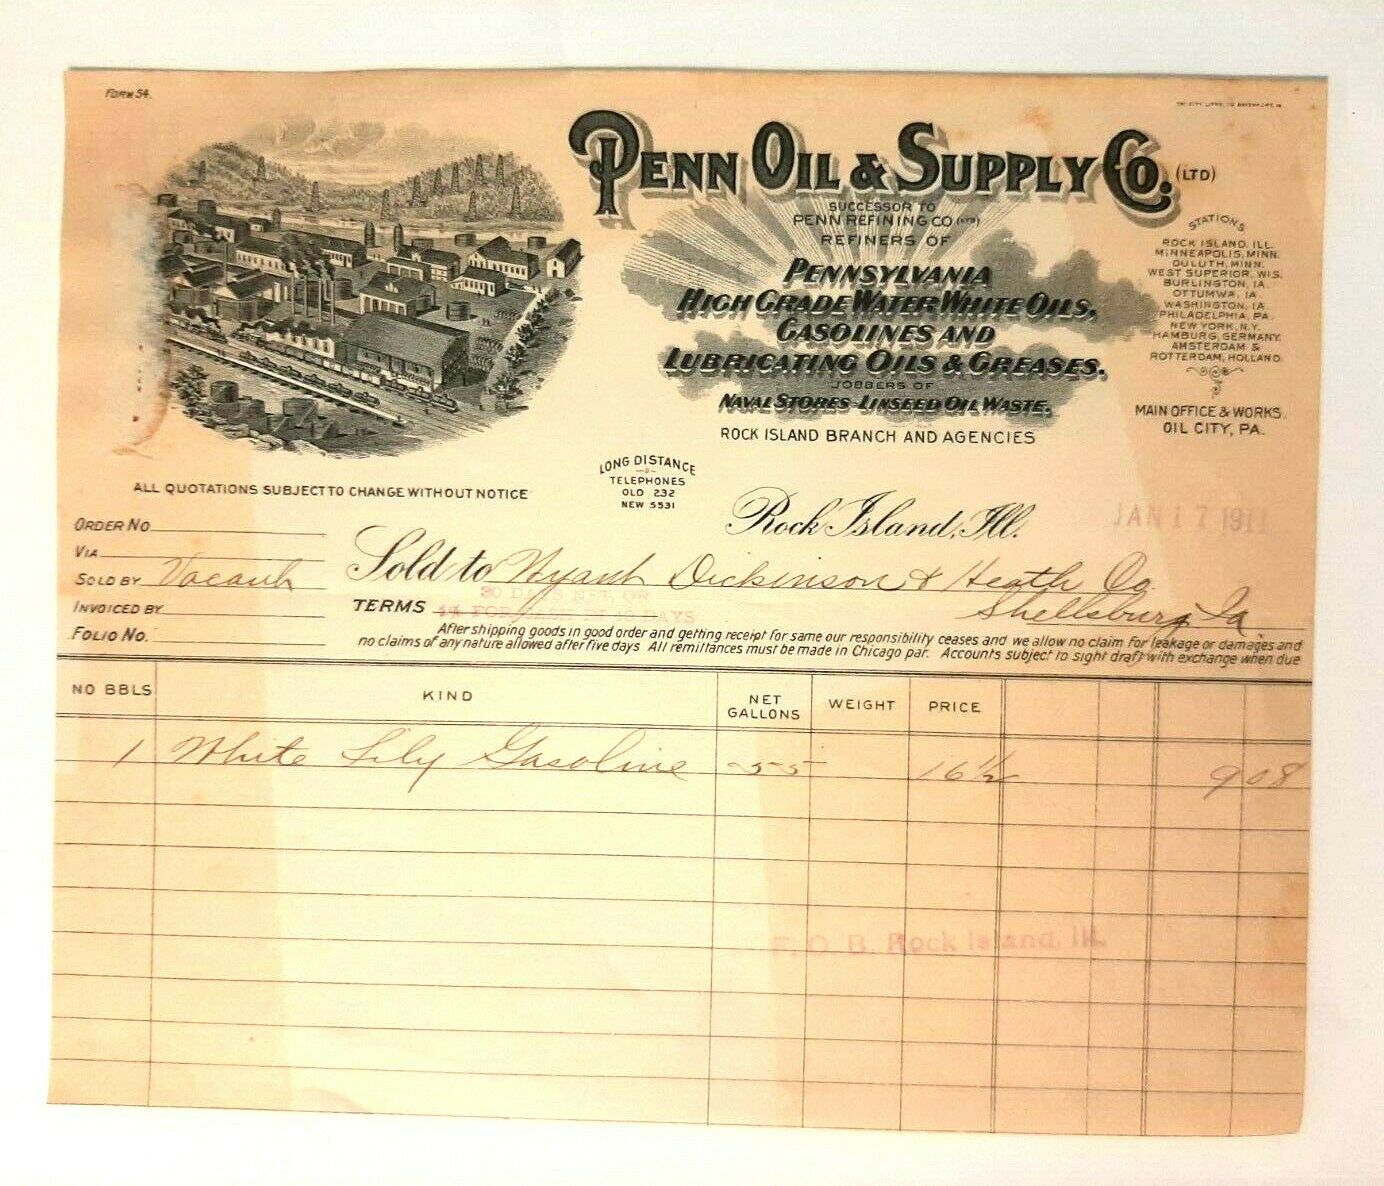 FORM 54.
PENN OIL & SUPPLY CO. (LTD)
SUCCESSOR TO
PENN REFINING CO (LTD)
REFINERS OF
PENNSYLVANIA
HIGH GRADE WATER WHITE OILS,
GASOLINES AND
LUBRICATING OILS & GREASES.
JOBBERS OF
NAVAL STORES-LINSEED OIL WASTE.
ROCK ISLAND BRANCH AND AGENCIES
STATIONS
ROCK ISLAND, ILL.
MINNEAPOLIS, MINN.
DULUTH, MINN.
WEST SUPERIOR, WIS.
BURLINGTON, IA.
OTTUMWA, IA
WASHINGTON, IA
PHILADELPHIA, PA.
NEW YORK, N.Y.
HAMBURG, GERMANY.
AMSTERDAM &
ROTTERDAM, HOLLAND
MAIN OFFICE & WORKS.
OIL CITY, PA.
LONG DISTANCE
TELEPHONES
OLD 232
NEW 5531
ALL QUOTATIONS SUBJECT TO CHANGE WITHOUT NOTICE
Rock Island, Ill. JAN 17 1911
ORDER NO
VIA
SOLD BY
INVOICED BY
FOLIO NO.
Sold to Dickinson & Heath Co.
Shellsburg, Ia
TERMS 30 DAYS NET, OR
FOR CASH IN 10 DAYS
After shipping goods in good order and getting receipt for same our responsibility ceases and we allow no claim for leakage or damages and
no claims of any nature allowed after five days All remittances must be made in Chicago par. Accounts subject to sight draft with exchange when due
NO BBLS KIND NET GALLONS WEIGHT PRICE
1 White Lily Gasoline 55 16½ 908
F. O. B. Rock Island, Ill.